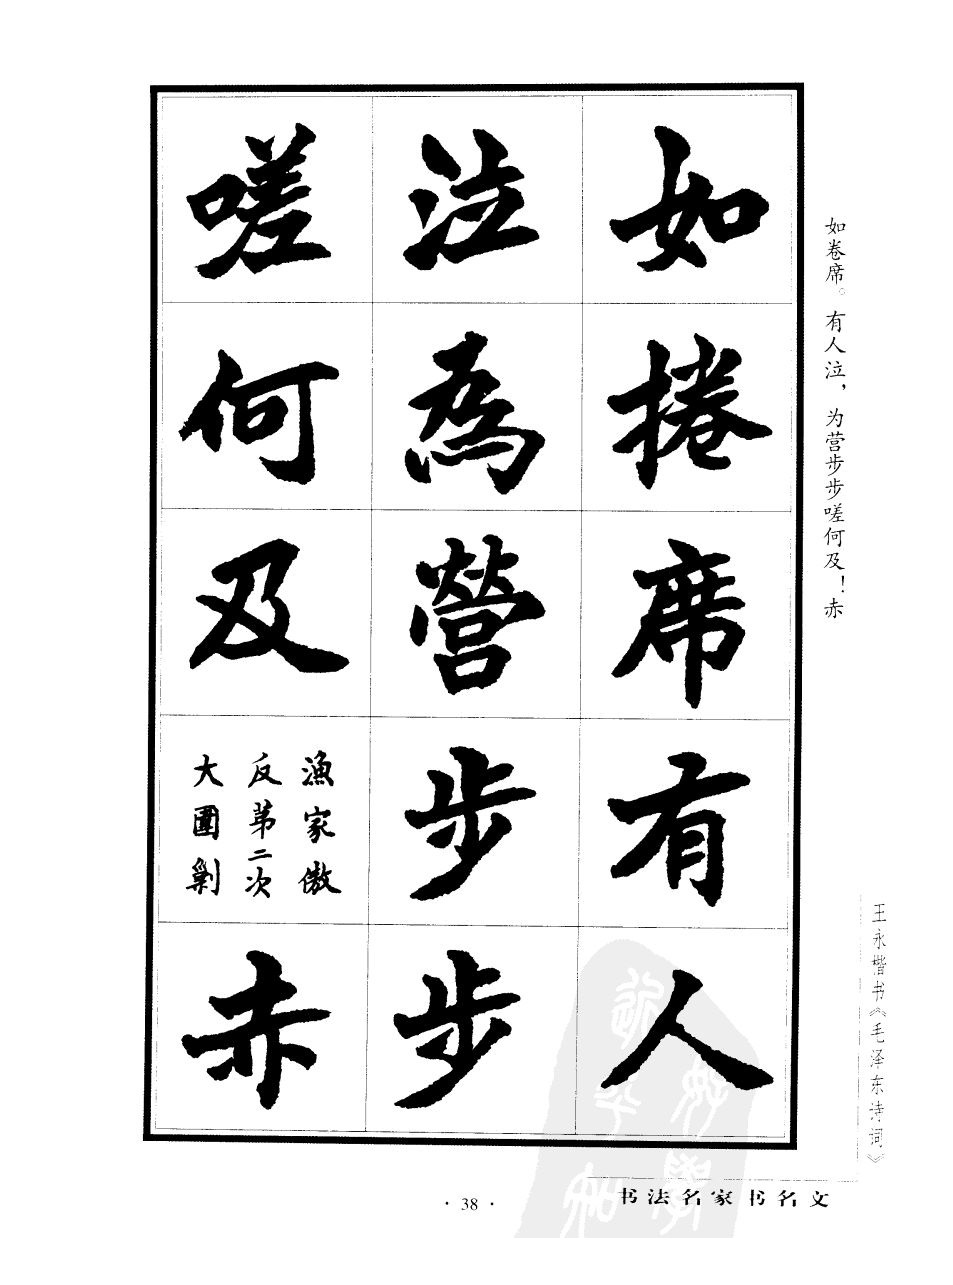 如捲席有人
泣為營步步
嗟何及
漁家傲
反第二次
大圍剿
赤
如卷席。有人泣，为营步步嗟何及！赤
王永楷书《毛泽东诗词》
书法名家书名文
· 38 ·